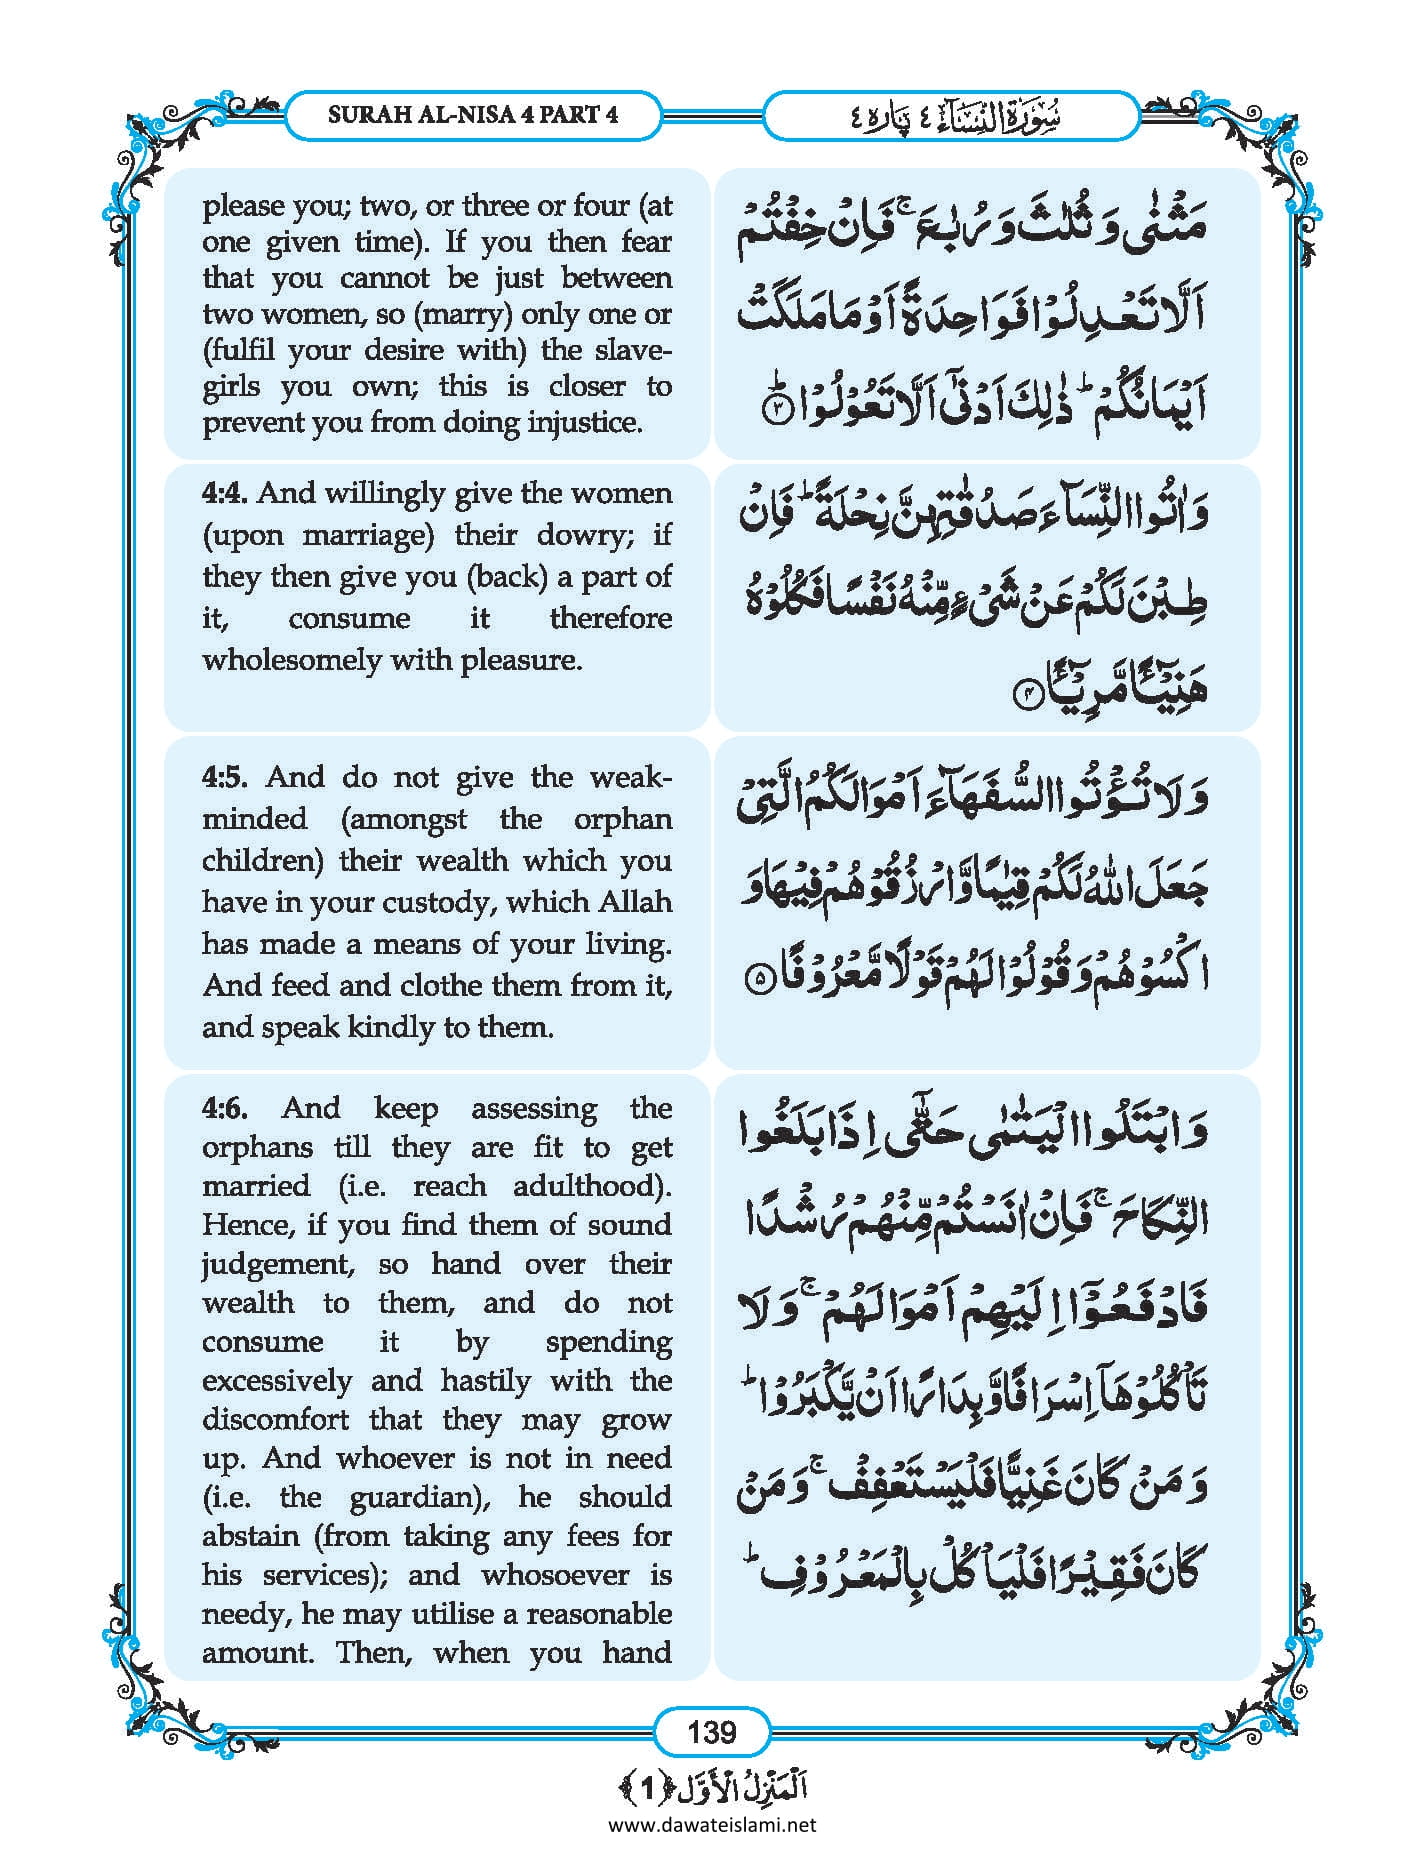 SURAH AL-NISA 4 PART 4
سُوْرَةُ النِّسَآء ٤ پارہ ٤
please you; two, or three or four (at
one given time). If you then fear
that you cannot be just between
two women, so (marry) only one or
(fulfil your desire with) the slave-
girls you own; this is closer to
prevent you from doing injustice.
مَثْنٰى وَ ثُلٰثَ وَ رُبٰعَ ۚ فَاِنْ خِفْتُمْ
اَلَّا تَعْدِلُوْا فَوَاحِدَةً اَوْ مَا مَلَكَتْ
اَیْمَانُكُمْ ؕ ذٰلِكَ اَدْنٰۤى اَلَّا تَعُوْلُوْا ؕ۝۳
4:4. And willingly give the women
(upon marriage) their dowry; if
they then give you (back) a part of
it, consume it therefore
wholesomely with pleasure.
وَ اٰتُوا النِّسَآءَ صَدُقٰتِهِنَّ نِحْلَةً ؕ فَاِنْ
طِبْنَ لَكُمْ عَنْ شَیْءٍ مِّنْهُ نَفْسًا فَكُلُوْهُ
هَنِیْٓــٴًـا مَّرِیْٓــٴًـا ۝۴
4:5. And do not give the weak-
minded (amongst the orphan
children) their wealth which you
have in your custody, which Allah
has made a means of your living.
And feed and clothe them from it,
and speak kindly to them.
وَ لَا تُؤْتُوا السُّفَهَآءَ اَمْوَالَكُمُ الَّتِیْ
جَعَلَ اللّٰهُ لَكُمْ قِیٰمًا وَّ ارْزُقُوْهُمْ فِیْهَا وَ
اكْسُوْهُمْ وَ قُوْلُوْا لَهُمْ قَوْلًا مَّعْرُوْفًا ۝۵
4:6. And keep assessing the
orphans till they are fit to get
married (i.e. reach adulthood).
Hence, if you find them of sound
judgement, so hand over their
wealth to them, and do not
consume it by spending
excessively and hastily with the
discomfort that they may grow
up. And whoever is not in need
(i.e. the guardian), he should
abstain (from taking any fees for
his services); and whosoever is
needy, he may utilise a reasonable
amount. Then, when you hand
وَ ابْتَلُوا الْیَتٰمٰى حَتّٰۤى اِذَا بَلَغُوا
النِّكَاحَ ۚ فَاِنْ اٰنَسْتُمْ مِّنْهُمْ رُشْدًا
فَادْفَعُوْۤا اِلَیْهِمْ اَمْوَالَهُمْ ۚ وَ لَا
تَاْكُلُوْهَاۤ اِسْرَافًا وَّ بِدَارًا اَنْ یَّكْبَرُوْا ؕ
وَ مَنْ كَانَ غَنِیًّا فَلْیَسْتَعْفِفْ ۚ وَ مَنْ
كَانَ فَقِیْرًا فَلْیَاْكُلْ بِالْمَعْرُوْفِ ؕ
139
اَلْمَنْزِلُ الْاَوَّل ﴿1﴾
www.dawateislami.net